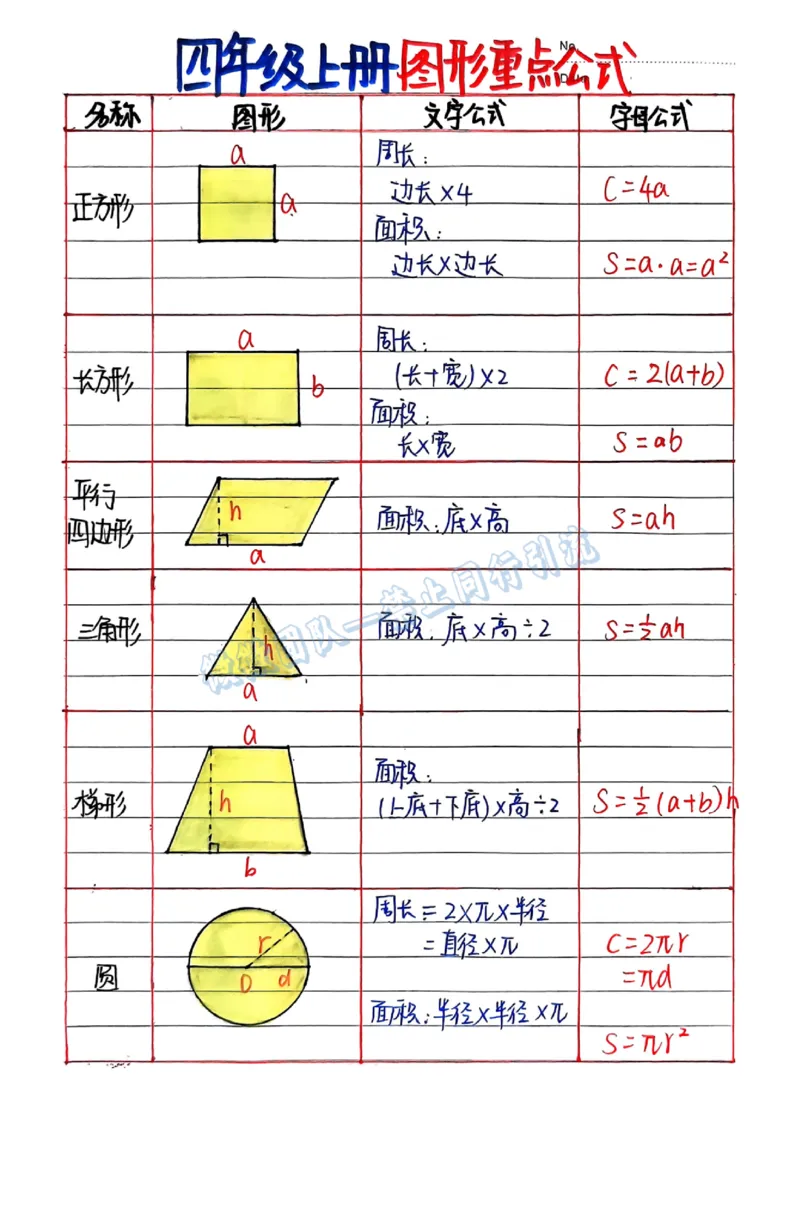 No.
四年级上册图形重点公式
名称 图形 文字公式 字母公式
正方形
a
a
周长:
边长×4
面积:
边长×边长
C=4a
S=a·a=a²
长方形
a
b
周长:
(长+宽)×2
面积:
长×宽
C=2(a+b)
S=ab
平行
四边形
h
a
面积:底×高
S=ah
三角形
h
a
面积:底×高÷2
S=½ah
梯形
a
h
b
面积:
(上底+下底)×高÷2
S=½(a+b)h
圆
r
O d
周长=2×π×半径
=直径×π
面积:半径×半径×π
C=2πr
=πd
S=πr²